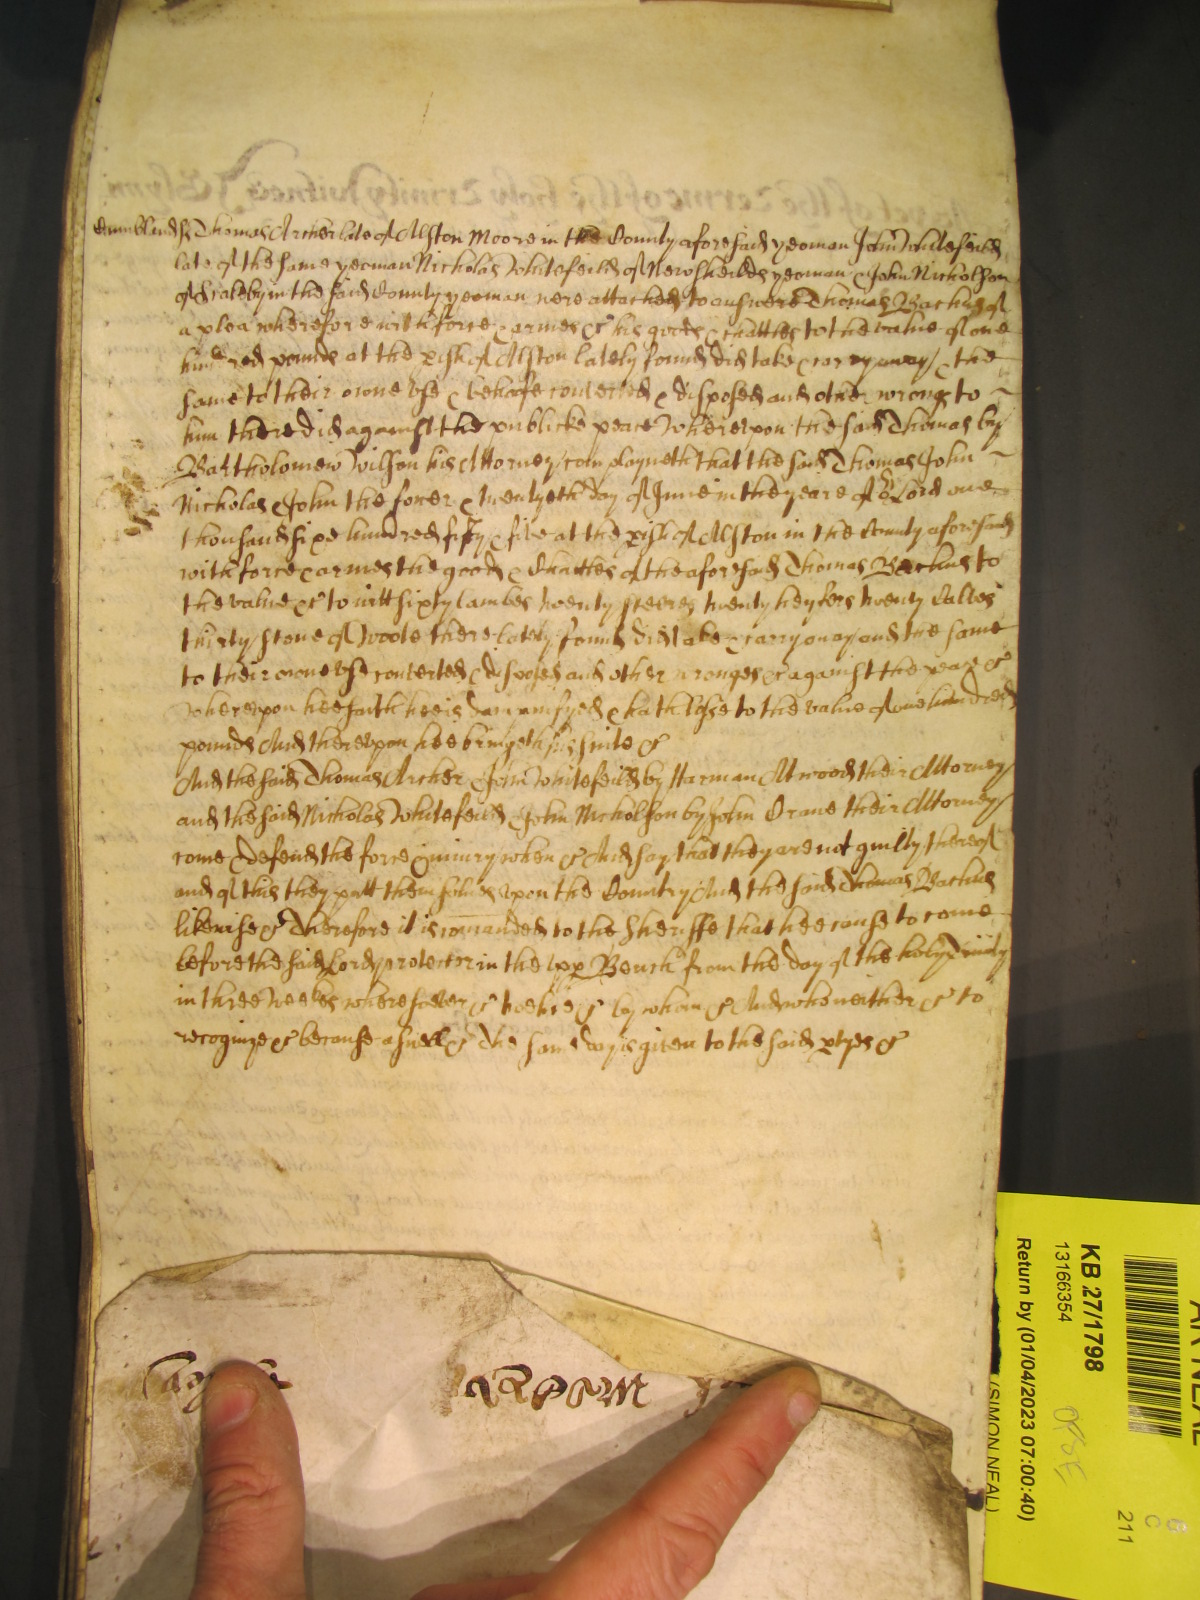 Cumbland ss Thomas Archer late of Allston Moore in the County aforesaid yeoman John Whitefeild
late of the same yeoman Nicholas Whitefeild of Newsheilds yeoman & John Nicholson
of in the said County yeoman were attached to answere Thomas Backus of
a plea wherefore with force & armes &c his goods & chattles to the value of one
hundred pounds at the pish of Allston lately found did take & carry away & the
same to their owne use & behoofe converted & disposed and other wrongs to
him there did against the publicke peace Whereupon the said Thomas by
Bartholomew Wilson his Attorney complayneth that the said Thomas John
Nicholas & John the fower & twentyeth day of June in the yeare of our Lord one
thousand sixe hundred fifty & five at the pish of Allston in the County aforesaid
with force & armes the goods & Chattles of the aforesaid Thomas Backus to
the value &c to witt sixty lambes twenty steeres twenty heyfers twenty Calves
thirty stone of Woole there lately found did take & carry away and the same
to their owne use converted & disposed and other wronges &c against the peace &c
Whereupon hee saith hee is damnifyed & hath losse to the value of one hundred
pounds And thereupon hee bringeth his suite &c
And the said Thomas Archer & John Whitefeild by Harman Atwood their Attorney
and the said Nicholas Whitefeild & John Nicholson by John Crane their Attorney
come & defend the force & iniury when &c And say that they are not guilty thereof
and of this they putt themselves upon the Country And the said Thomas Backus
likewise &c Therefore it is comanded to the Sheriffe that hee cause to come
before the said Lord protector in the upp Bench from the day of the holy Trinity
in three Weekes wheresoever &c twelve &c by whom &c And who neither &c to
recognize &c because aswell &c The same day is given to the said ptyes &c
KB 27/1798
13166354
Return by (01/04/2023 07:00:40)
(SIMON NEAL)
211